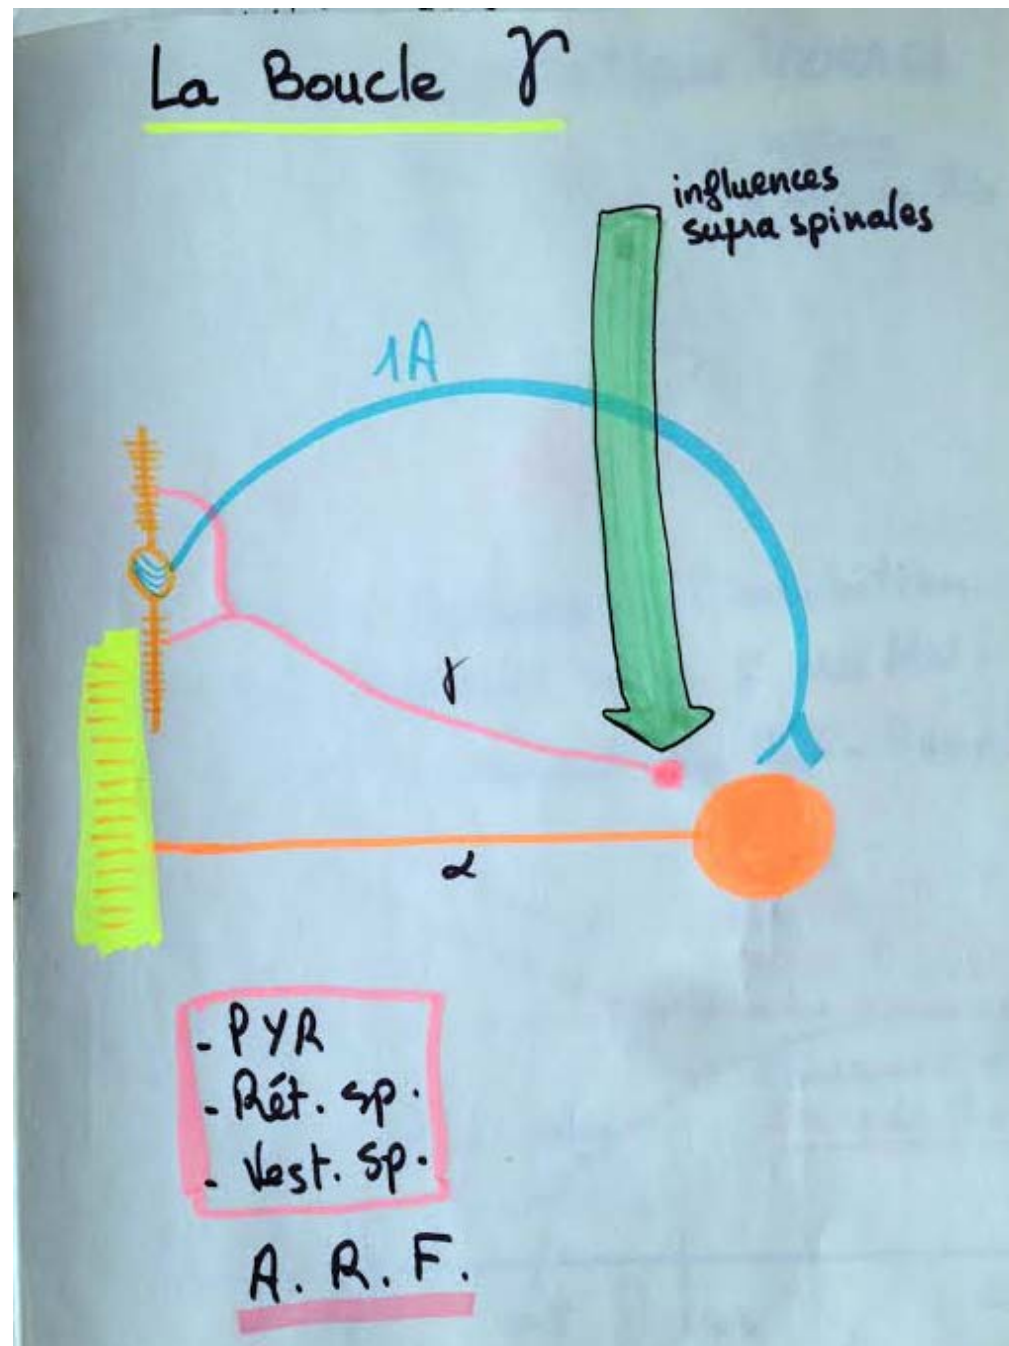 La Boucle γ
influences
supra spinales
1A
γ
α
- PYR
- Rét. sp.
- Vest. sp.
A. R. F.